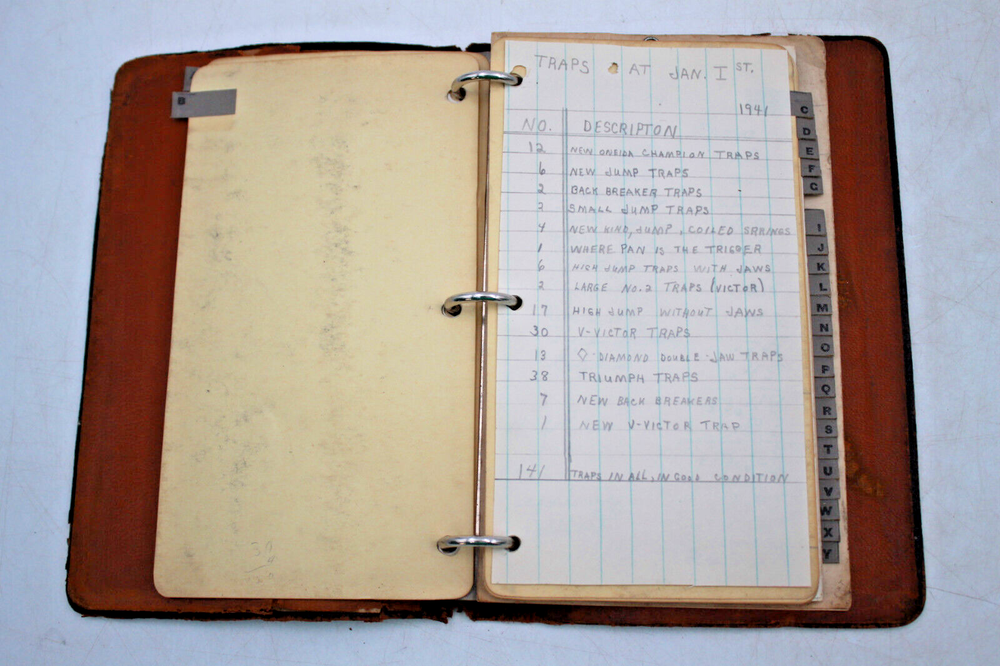 B
TRAPS AT JAN. I ST.
1941
NO. DESCRIPTON
12 NEW ONEIDA CHAMPION TRAPS
6 NEW JUMP TRAPS
2 BACK BREAKER TRAPS
2 SMALL JUMP TRAPS
4 NEW KIND, JUMP, COILED SPRINGS
1 WHERE PAN IS THE TRIGGER
6 HIGH JUMP TRAPS WITH JAWS
2 LARGE NO.2 TRAPS (VICTOR)
17 HIGH JUMP WITHOUT JAWS
30 V-VICTOR TRAPS
13 ◇-DIAMOND DOUBLE-JAW TRAPS
38 TRIUMPH TRAPS
7 NEW BACK BREAKERS
1 NEW V-VICTOR TRAP
141 TRAPS IN ALL, IN GOOD CONDITION
C
D
E
F
G
I
J
K
L
M
N
O
P
Q
R
S
T
U
V
W
X
Y